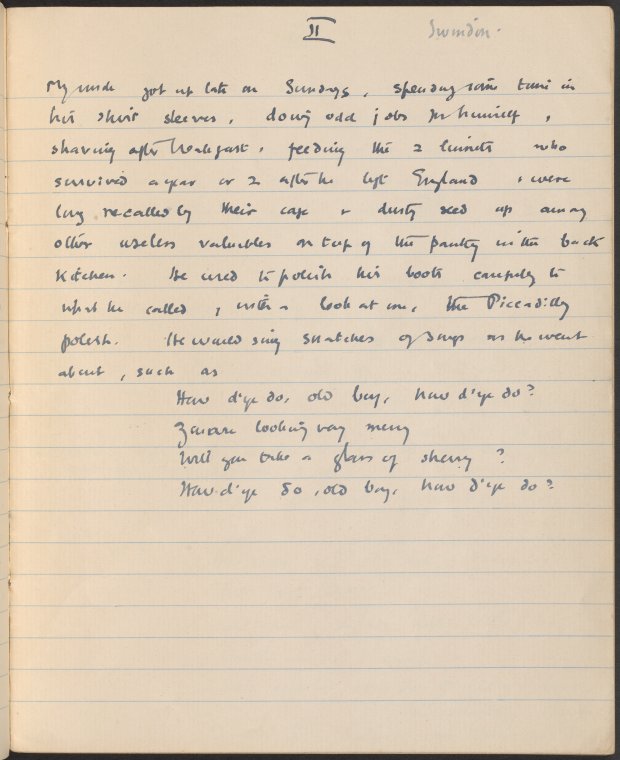 II Swindon.
My uncle got up late on Sundays, spending some time in
his shirt sleeves, doing odd jobs for himself,
shaving after breakfast, feeding the 2 linnets who
survived a year or 2 after he left England & were
long recalled by their cage & dusty seed up among
other useless valuables on top of the pantry in the back
kitchen. He used to polish his boots carefully to
what he called, with a look at me, the Piccadilly
polish. He would sing snatches of songs as he went
about, such as
How d'ye do, old boy, how d'ye do?
You are looking very merry
Will you take a glass of sherry?
How d'ye do, old boy, how d'ye do?